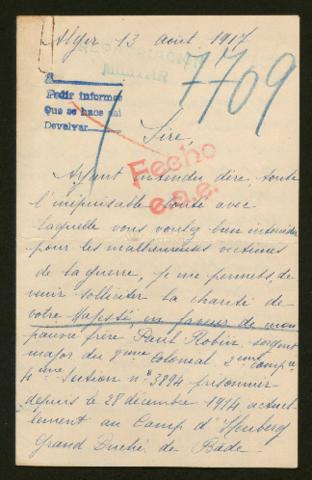 Alger 13 août 1917
MILITAR
7709
A
Pedir informes
Que se haos asi
Devolver
Sire,
Fecho
e.a.e.
Ayant entendu dire, toute
l'inépuisable bonté avec
laquelle vous voulez bien intercéder
pour les malheureuses victimes
de la guerre, je me permets de
venir solliciter la charité de
votre Majesté, en faveur de mon
pauvre frère Paul Robin, sergent
major du 8ème Colonial. 2ème Comp ie
4ème section nº 3894 prisonnier
depuis le 28 décembre 1914, actuel-
lement au Camp d'Heuberg
Grand Duché de Bade